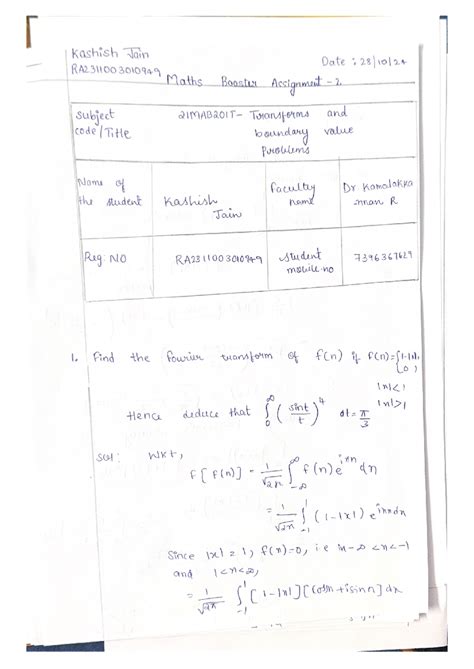 Kashish Jain
Date : 28/10/24
RA2311003010949
Maths Booster Assignment - 2
Subject code / Title
21MAB201T - Transforms and boundary value Problems
Name of the student
Kashish Jain
Faculty name
Dr. Kamalakka annan R
Reg: NO
RA2311003010949
Student mobile no
7396367629
1. Find the fourier transform of f(n) if f(n) = { 1-|x|, |n|<1
0, |n|>1
Hence deduce that ∫₀^∞ (sint/t)^4 dt = π/3
Sol: WKT,
F[f(n)] = 1/√2π ∫_{-∞}^{∞} f(n) e^{isn} dn
= 1/√2π ∫_{-1}^{1} (1-|x|) e^{isn} dn
Since |x| 2 1, f(n)=0, i.e in -∞ < n < -1
and 1<n<∞,
= 1/√2π ∫_{-1}^{1} [1-|n|] [cosn + isinn] dx